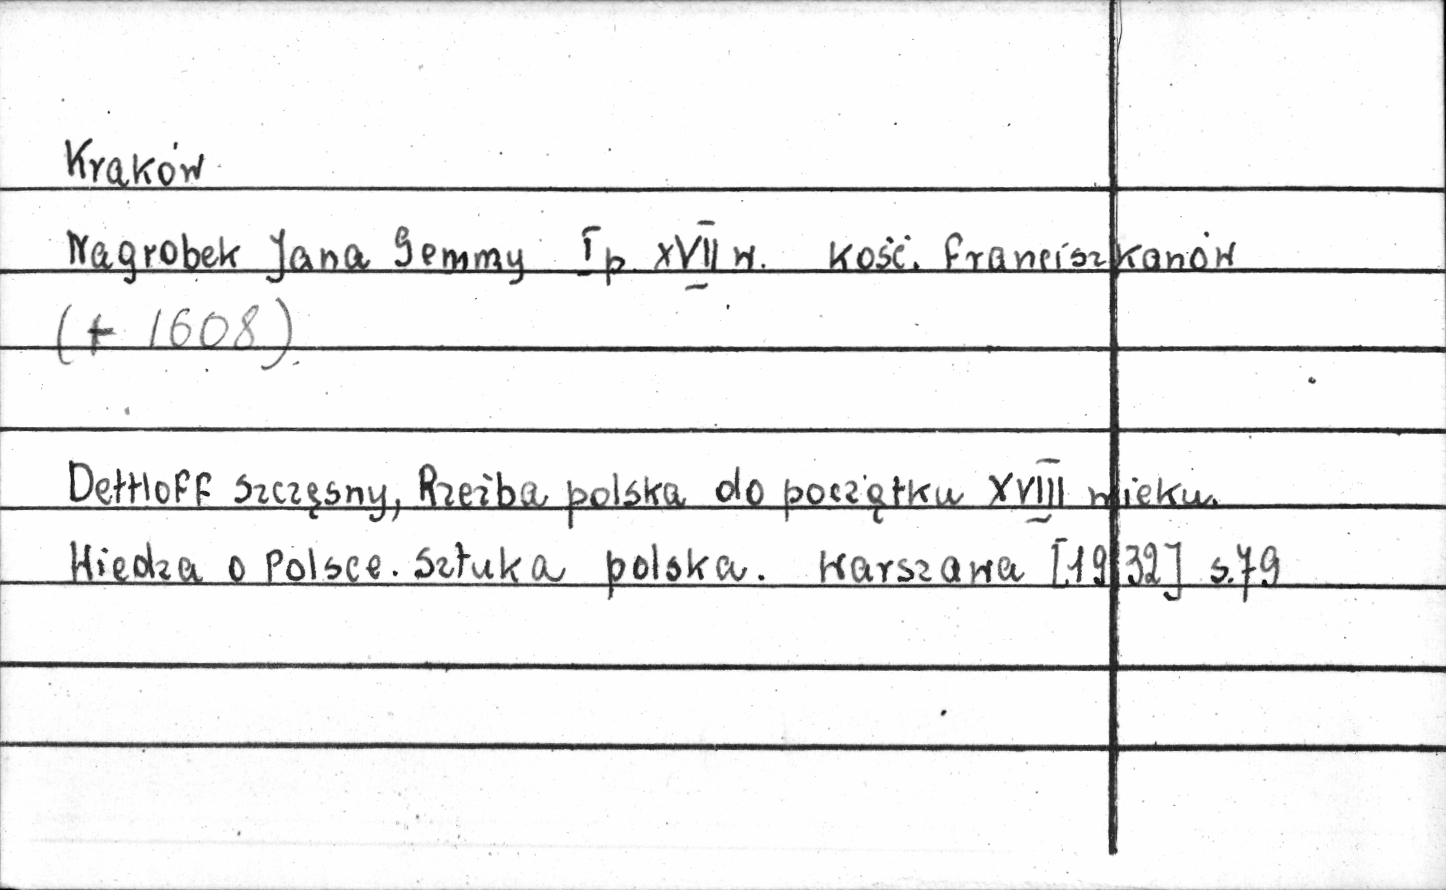 Kraków
Nagrobek Jana Gemmy I p. XVII w. kość. Franciszkanów
(+ 1608)
Dettloff Szczęsny, Rzeźba polska do początku XVIII wieku.
Wiedza o Polsce. Sztuka polska. Warszawa [1932] s.79